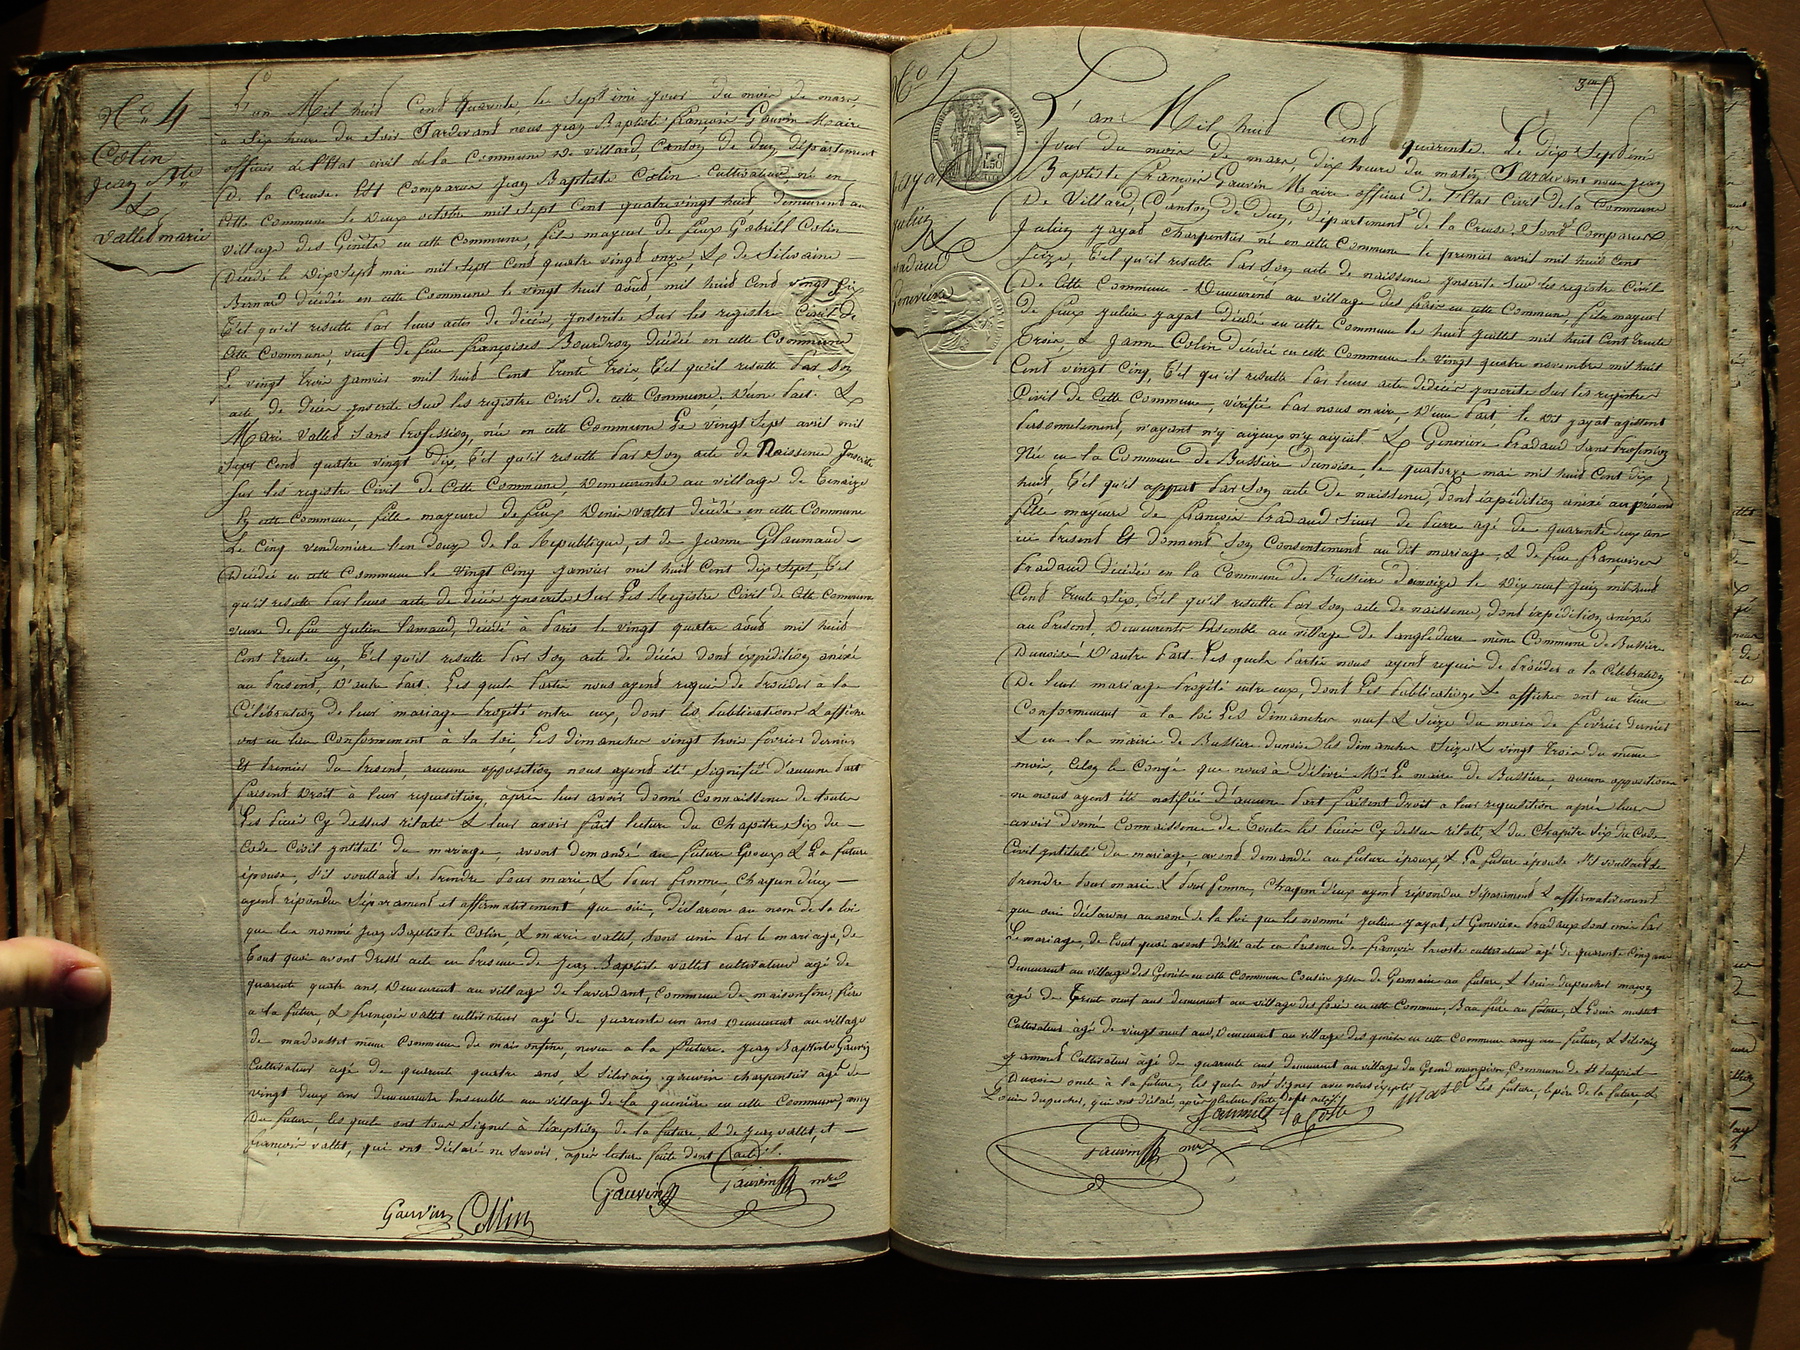 N° 4
Colin
Jean Bte
&
Vallet marie
L'an Mil huit Cent quarante, le Septième jour du mois de mars
à Six heure du Soir Pardevant nous Jean Baptiste françois Gauvin Maire
officier de l'Etat civil de la Commune de Villard, Canton de Dun, département
De la Creuse. Est Comparu Jean Baptiste Colin Cultivateur, né en
Cette Commune le Deux octobre mil sept Cent quatre vingt huit demeurant au
village des Genêts en cette Commune, fils majeur de feux Gabriell Colin
Décédé le Dix sept mai mil sept Cent quatre vingt onze, & de Silvaine
Bernard décédée en cette Commune le vingt huit août, mil huit Cent vingt Six
T'el qu'il resulte par leurs actes de décès, ynscrits Sur les registre Civil de
Cette Commune, veuf de feue françoises Bourdron décédé en cette Commune
Le vingt trois janvier mil huit Cent Trente Trois, T'el qu'il resulte par Son
acte de Décès ynscrit Sur les registre Civil de cette Commune. D'une part. &
Marie Vallet Sans profession, née en cette Commune Le vingt Sept avril mil
Sept Cent quatre vingt Dix, T'el qu'il resulte par Son acte de Naissence Inscrite
Sur les registre Civil de Cette Commune, Demeurante au village de
En cette Commune, fille majeure de feux Denis Vallet décédé en cette Commune
Le Cinq Vendemière l'en Douze de la République, et de Jeanne Glaumaud
Décédée en cette Commune le Vingt Cinq janvier mil huit Cent Dix Sept, T'el
qu'il resulte par leurs acte de décès ynscrits Sur Les Registre Civil de Cette Commune
veuve de feu Julien Lamaud, décédé à Paris le vingt quatre août mil huit
Cent Trente un, T'el qu'il resulte par Son acte de décès dont expédition anéxé
au présent, D'autre part. Les quels partie nous ayend requi de procéder à la
Célébration de leur mariage projeté entre eux, dont les publications & affiche
ont eu lieu Conformement à la loi, Les dimanches vingt trois fevrier dernier
Et premier du présent, aucune opposition nous ayend été Signifié d'aucune part
faisent Droit à leur requisition, après leur avoir donné Connaissence de toutes
Les pièces Cy dessus rélaté & leur avoir fait lecture du Chapitre Six du
Code Civil yntitulé du mariage, avont demandé au future Epoux & La future
épouse, S'il voullait se prendre pour marie & pour femme, Chaqun d'eux
ayend répondu Séparament et affirmativement que oüi, déclaron au nom de la loi
que les nommé Jean Baptiste Colin, & marie vallet, Sont unis par le mariage, de
Tout quoi avont dressé acte en présence de Jean Baptiste vallet cultivateur agé de
quarente quatre ans, Demeurent au village de Laverdant, Commune de maisonfene, frère
a la future, & françois vallet cultivateur agé de quarente un ans Demeurent au village
de madousset même Commune de maisonfene, neveu a la future. Jean Baptiste Gauvin
Cultivateur agé de quarente quatre ans, & Silvain gauvin charpentier agé de
vingt deux ans demeurente Ensemble au village de la en cette Commune, amy
Du future, les quels ont tous Signé à l'exeption de la future, & de Jean vallet, et
françois vallet, qui ont déclaré ne Savoir, après lecture faite dont acte.
Gauvin Gauvin mre
Gauvin Collin
3me f
N° 5
Jayat
Julien
&
Pradaud
Genevière
TIMBRE ROYAL
L'an Mil huit Cent quarente. Le Dix Septième
Jour du mois de mars, dix heure du matin, Pardevant nous Jean
Baptiste françois Gauvin Maire officier de l'Etat Civil de la Commune
De Villard, Canton de Dun, département de la Creuse. Sont Comparu
Julien jayat Charpentier né en cette Commune le premier avril mil huit Cent
Seize, T'el qu'il resulte par Son acte de naissence ynscrite Sur les registre Civil
De Cette Commune Demeurent au village des en cette Commune, fils majeur
De feux Julien jayat Décédé en cette Commune le huit juillet mil huit Cent Trente
Trois, & Janne Colin Décédée en cette Commune le vingt quatre novembre mil huit
Cent vingt Cinq, T'el qu'il resulte par leurs acte dédécès ynscrite Sur les registre
Civil de Cette Commune, vérifié par nous maire, D'une part, le Dit jayat agissent
personnelement, n'ayant n'y aiyeux n'y aiyeul. & Genevière Pradaud Sans profession
Née en la Commune de Bussière Dunoise, le quatorze mai mil huit Cent dix
huit, T'el qu'il apput par Son acte de naissence, dont éxpédition anéxé au présent
fille majeure de françois Pradaud Sieur de pierre agé de quarente deux ans
ici présent Et donnent Son Consentement au dit mariage, & de feue françoise
Pradaud décédée en la Commune de Bussière Dunoize le Dix neuf juin mil huit
Cent Trente Six, T'el qu'il resulte par Son acte de naissence, dont éxpédition anéxé
au présent. Demeurente Ensemble au village de Langledure même Commune de Bussière
Dunoise D'autre part. Les quels partie nous ayent requi de procéder a la Célébration
De leur mariage projété entre eux, dont Les publications & affiches ont eu lieu
Conformement à la loi Les dimanches neuf & Seize du mois de fevrier dernier
& en la mairie de Bussière dunoise les dimanches Seize & vingt Trois du même
mois, Celon le Congé que nous à délivré Mr Le maire de Bussière, aucune opposition
ne nous ayent été notifiée d'aucune part faisent droit a leur requisition après leur
avoir donné Connaissence de Toutes les pièces Cy dessus rélaté, & du Chapitre Six du Code
Civil yntitulé du mariage, avond demandé au future époux, & La future épouse S'il voullait se
prendre pour marie & pour femme, Chaqun d'eux ayend répondu Séparament & affirmativement
que oui déclarons au nom de la loi que les nommé Julien jayat, et Genevière Pradaud Sont unis par
Le mariage, de tout quoi avont dréssé acte en présence de françois Lacoste cultivateur agé de quarente Cinq ans
Demeurent au village des Genêt en cette Commune Cousin yssu de Germain au future, & Louis dupechet maçon
agé de Trente neuf ans demeurent au village des en cette Commune, Beau frère au future, & Louis massé
Cultivateur agé de vingt neuf ans, Demeurent au village des genêts en cette Commune amy au future, & Silvain
yammet Cultivateur agé de quarente ans demeurent au village du Grand Commune de St Sulpice
Dunoise oncle à la future, les quels ont Signer avec nous éxepté Les future, le père de la future, &
Louis dupechet, qui ont déclaré, après lecture faite, dont acte.
Jammet Lacoste massé
Gauvin mre